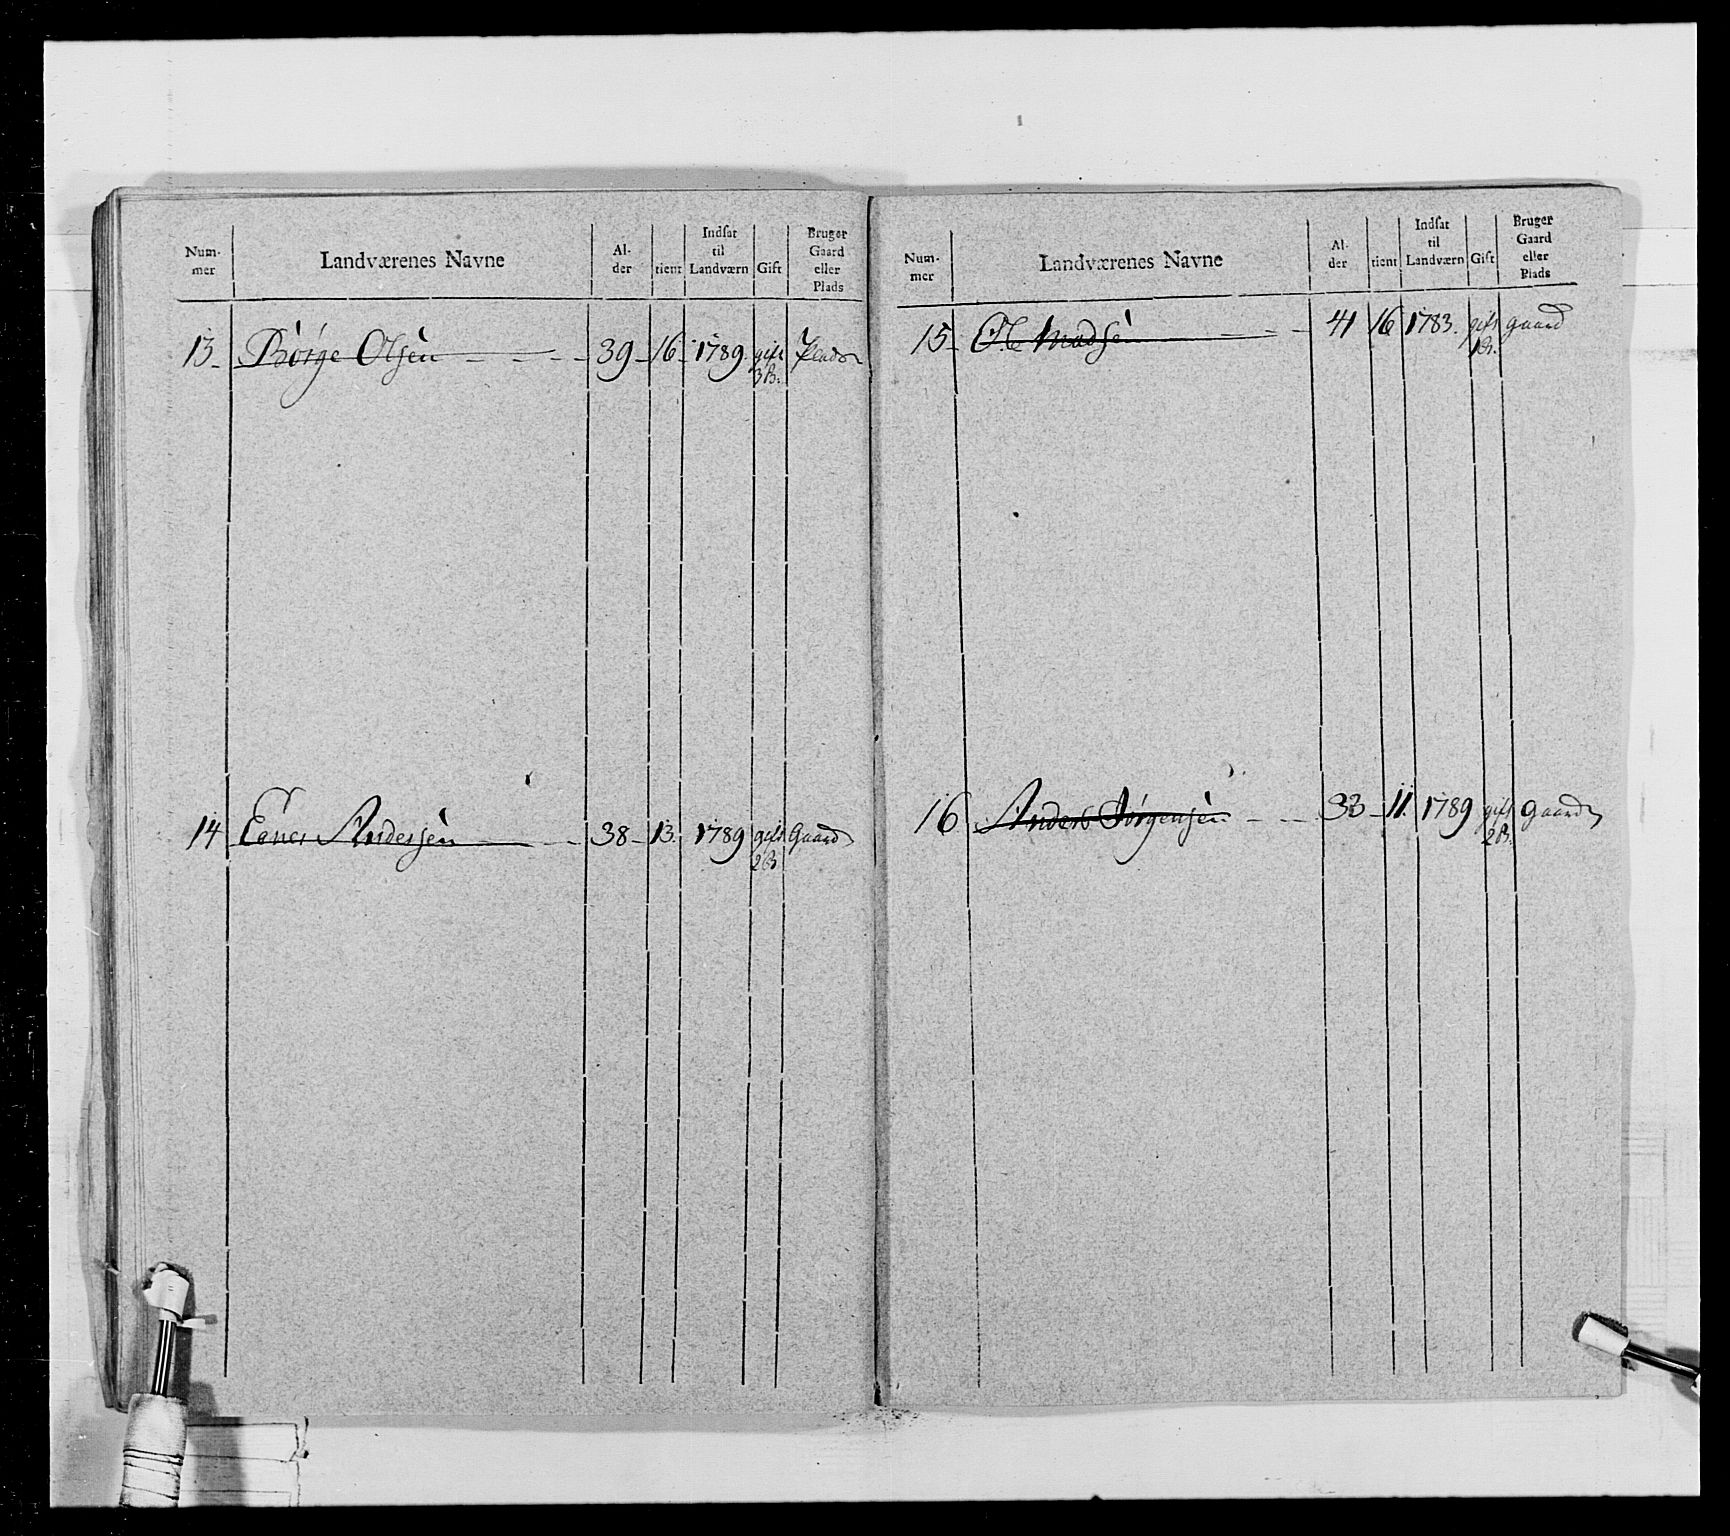 Num-
mer
Landværenes Navne
Al-
der
tient
Indsat
til
Landværn
Gift
Bruger
Gaard
eller
Plads
13. Børge Olsen 39 16 1789. gift Plads
3 B.
14 Ebner Andersen 38 13. 1789 gift Gaard
2 B
Num-
mer
Landværenes Navne
Al-
der
tient
Indsat
til
Landværn
Gift
Bruger
Gaard
eller
Plads
15 Ole Madsen 41 16 1783. gift gaard
1 B.
16 Anders Jørgensen 33 11. 1789 gift Gaard
2 B.